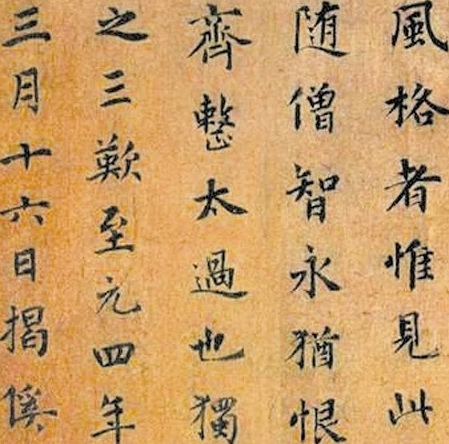 風格者惟見此
随僧智永猶恨
齊整太過也獨
之三歎至元四年
三月十六日揭傒